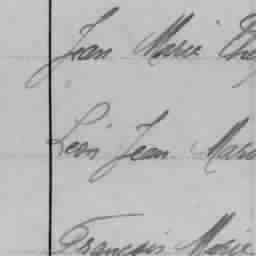 Jean Marie
Léon Jean Marie
François Marie